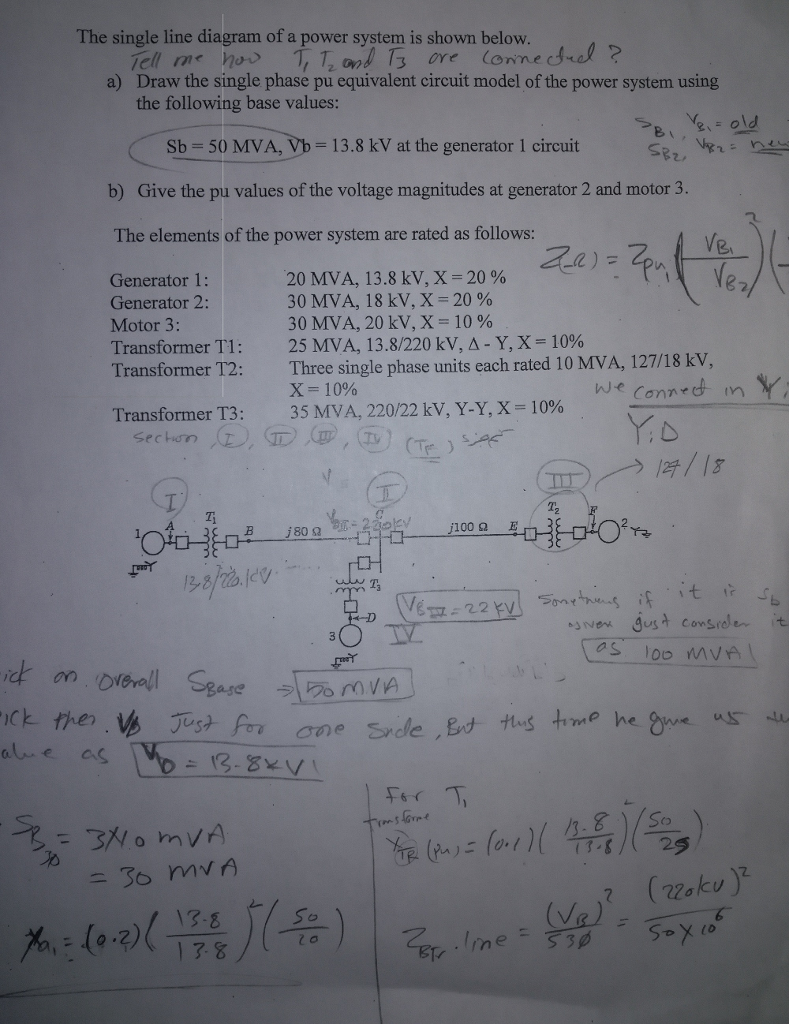 The single line diagram of a power system is shown below.
Tell me how T1, T2 and T3 are connected ?
a) Draw the single phase pu equivalent circuit model of the power system using
the following base values:
SB1, VB1 = old
SB2, VB2 = new
Sb = 50 MVA, Vb = 13.8 kV at the generator 1 circuit
b) Give the pu values of the voltage magnitudes at generator 2 and motor 3.
The elements of the power system are rated as follows:
Generator 1: 20 MVA, 13.8 kV, X = 20 %
Generator 2: 30 MVA, 18 kV, X = 20 %
Motor 3: 30 MVA, 20 kV, X = 10 %
Transformer T1: 25 MVA, 13.8/220 kV, Δ - Y, X = 10%
Transformer T2: Three single phase units each rated 10 MVA, 127/18 kV,
X = 10%
we connect in Y:
Transformer T3: 35 MVA, 220/22 kV, Y-Y, X = 10%
Y:D
section, I, II, III, IV
127/18
I
II
III
T1
T2
1 A B j80 Ω C j100 Ω E F 2
13.8/220.kV
T3
D
3
IV
= 22 kV
Sometimes if it is Sb
given just consider it
as 100 MVA
on overall SBase ⇒ 50 MVA
then Vb Just for one side, But this time he gave us
as Vb = 13.8 kV
For T1
transforme
(pu) = (0.1) (13.8/13.8)² (50/25)
= 3×10 MVA
= 30 MVA
= (0.2) (13.8/13.8)² (50/20)
line = (VB)²/S3Ø = (220kV)²/50×10⁶